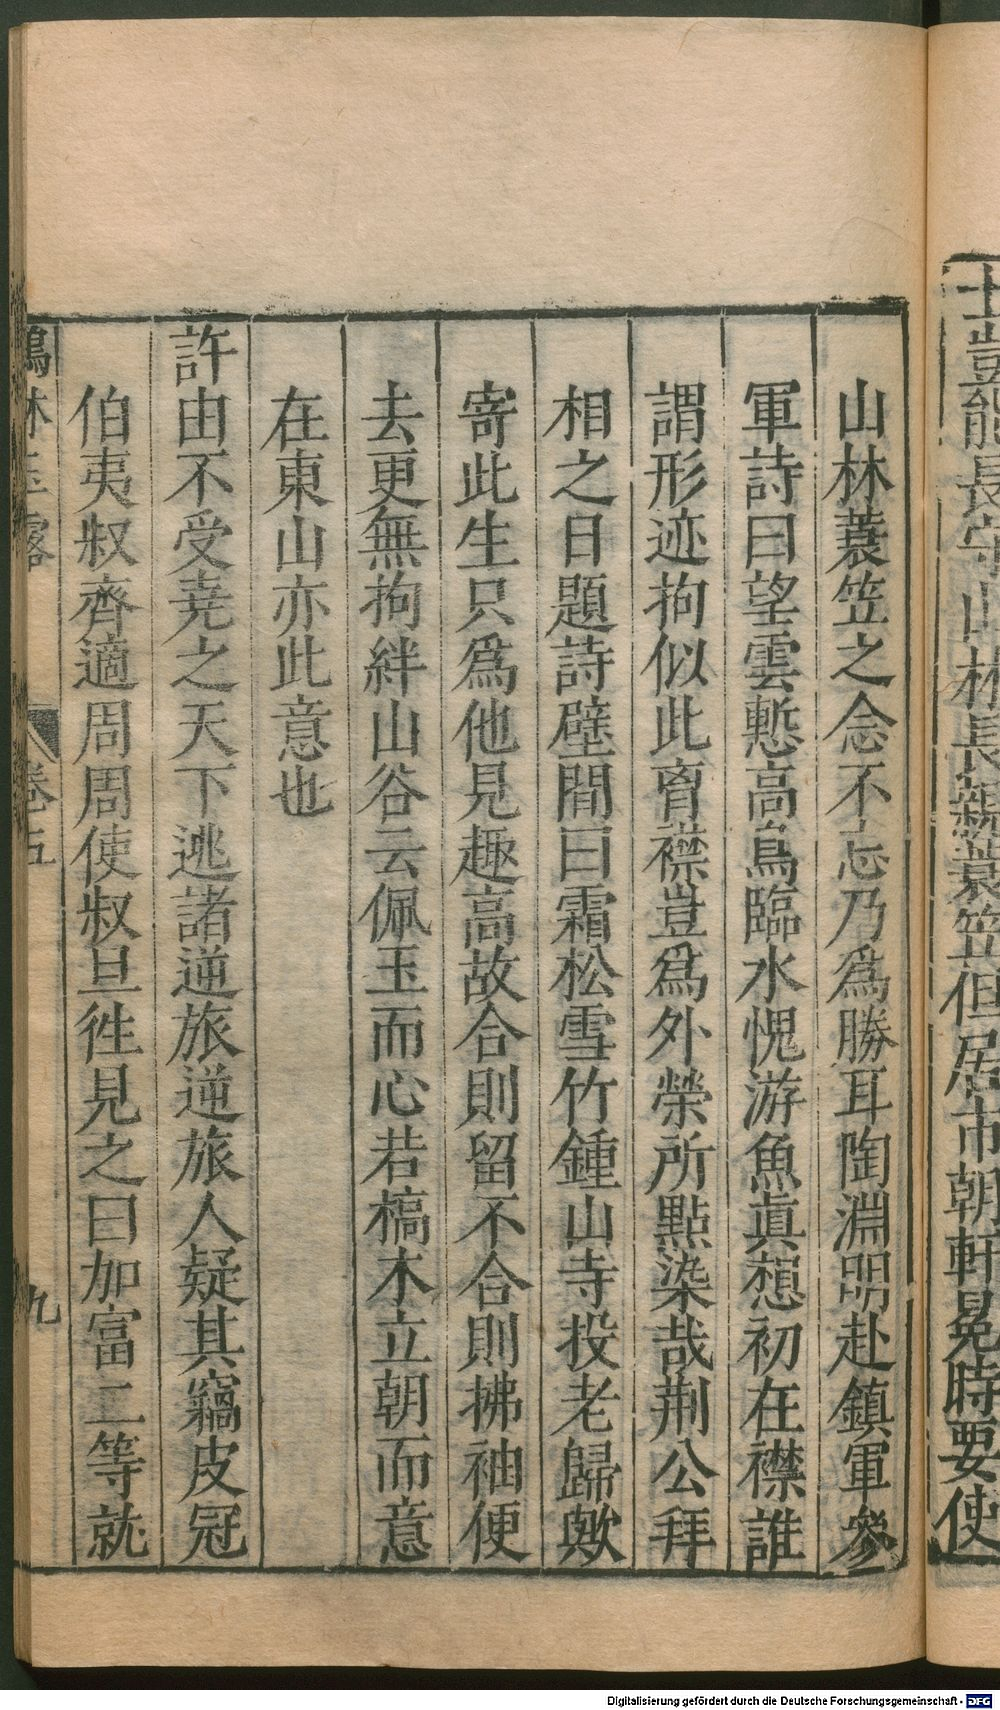 士豈能長守山林長親蓑笠但居市朝軒冕時要使
山林蓑笠之念不忘乃爲勝耳陶淵明赴鎮軍參
軍詩曰望雲慙高鳥臨水愧游魚眞想初在襟誰
謂形迹拘似此胷襟豈爲外榮所點染哉荆公拜
相之日題詩壁間曰霜松雪竹鍾山寺投老歸歟
寄此生只爲他見趣高故合則留不合則拂袖便
去更無拘絆山谷云佩玉而心若槁木立朝而意
在東山亦此意也
許由不受堯之天下逃諸逆旅逆旅人疑其竊皮冠
伯夷叔齊適周周使叔旦徃見之曰加富二等就
鶴林玉露 卷五 九
Digitalisierung gefördert durch die Deutsche Forschungsgemeinschaft - DFG